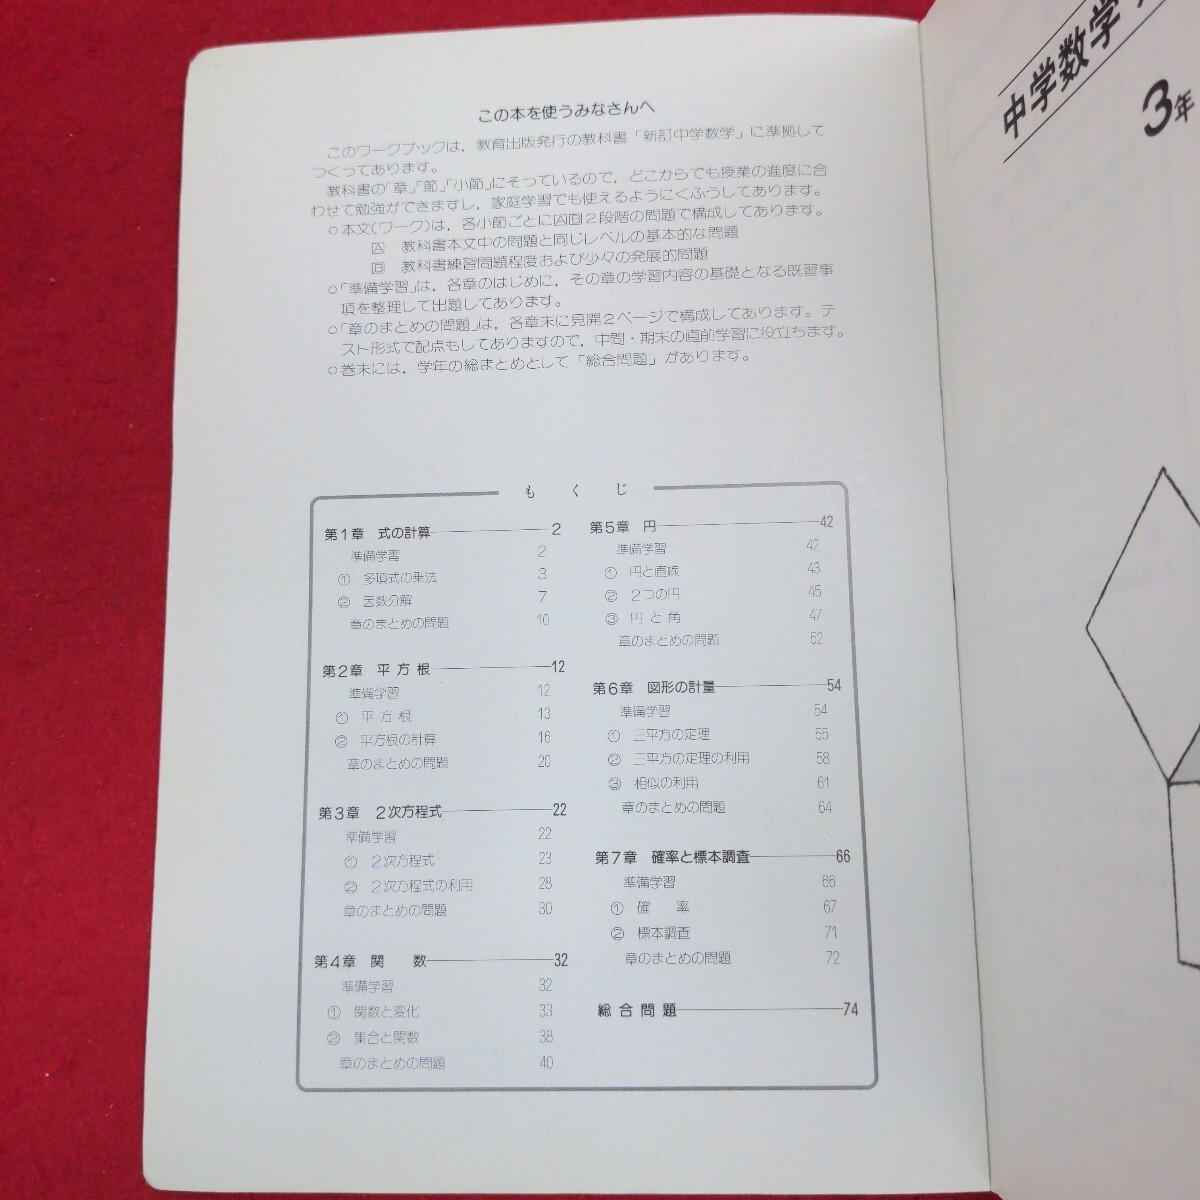 この本を使うみなさんへ
このワークブックは，教育出版発行の教科書「新訂中学数学」に準拠して
つくってあります。
教科書の「章」「節」「小節」にそっているので，どこからでも授業の進度に合
わせて勉強ができますし，家庭学習でも使えるようにくふうしてあります。
○本文(ワーク)は，各小節ごとにAB2段階の問題で構成してあります。
A 教科書本文中の問題と同じレベルの基本的な問題
B 教科書練習問題程度および少々の発展的問題
○「準備学習」は，各章のはじめに，その章の学習内容の基礎となる既習事
項を整理して出題してあります。
○「章のまとめの問題」は，各章末に見開2ページで構成してあります。テ
スト形式で配点もしてありますので，中間・期末の直前学習に役立ちます。
○巻末には，学年の総まとめとして「総合問題」があります。
もくじ
第1章 式の計算 2
準備学習 2
① 多項式の乗法 3
② 因数分解 7
章のまとめの問題 10
第2章 平方根 12
準備学習 12
① 平方根 13
② 平方根の計算 16
章のまとめの問題 20
第3章 2次方程式 22
準備学習 22
① 2次方程式 23
② 2次方程式の利用 28
章のまとめの問題 30
第4章 関数 32
準備学習 32
① 関数と変化 33
② 集合と関数 38
章のまとめの問題 40
第5章 円 42
準備学習 42
① 円と直線 43
② 2つの円 45
③ 円と角 47
章のまとめの問題 52
第6章 図形の計量 54
準備学習 54
① 三平方の定理 55
② 三平方の定理の利用 58
③ 相似の利用 61
章のまとめの問題 64
第7章 確率と標本調査 66
準備学習 66
① 確率 67
② 標本調査 71
章のまとめの問題 72
総合問題 74
中学数学
3年